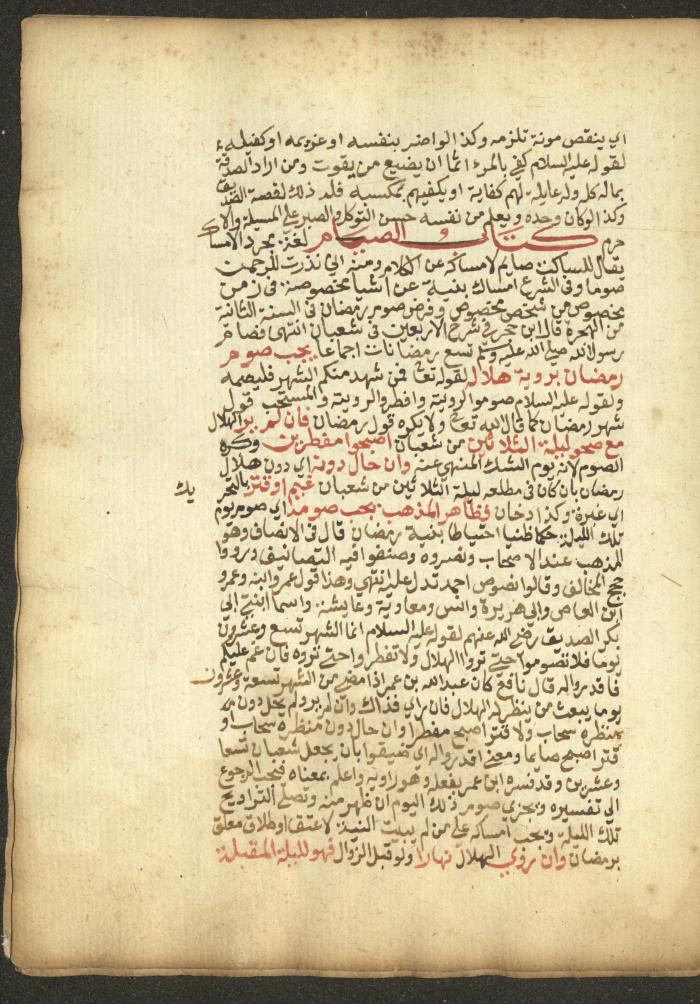 اي ينقص مونة تلزمه وكذا لو اضر بنفسه او غريمه او كفيله
لقوله عليه السلام كفى بالمرء اثما ان يضيع من يقوت ومن اراد الصدقة
بماله كله وله عايلة لهم كفاية او يكفيهم بمكسبه فله ذلك لقصة الصديق
وكذا لو كان وحده ويعلم من نفسه حسن التوكل والصبر على المسيلة والا
حرم كتاب الصيام لغة مجرد الامساك
يقال للساكت صايم لامساكه عن الكلام ومنه اني نذرت للرحمن
صوما وفي الشرع امساك بنية عن اشيا مخصوصة في زمن
مخصوص من شخص مخصوص وفرض صوم رمضان في السنة الثانية
من الهجرة قال ابن حجر في شرح الاربعين في شعبان انتهى فصام
رسول الله صلى الله عليه وسلم تسع رمضانات اجماعا يجب صوم
رمضان بروية هلاله لقوله تعالى فمن شهد منكم الشهر فليصمه
ولقوله عليه السلام صوموا لرويته وافطروا لرويته والمستحب قول
شهر رمضان كما قال الله تعالى ولا يكره قول رمضان فان لم ير الهلال
مع صحو ليلة الثلاثين من شعبان اصبحوا مفطرين وكره
الصوم لانه يوم الشك المنهي عنه وان حال دونه اي دون هلال
رمضان بان كان في مطلعه ليلة الثلاثين من شعبان غيم او قتر بالتحريك
اي غبرة وكذا دخان فظاهر المذهب يجب صومه اي صوم يوم
تلك الليلة حكما ظنيا احتياطا بنية رمضان قال في الانصاف وهو
المذهب عند الاصحاب ونصروه وصنفوا فيه التصانيف وردوا
حجج المخالف وقالوا نصوص احمد تدل عليه انتهى وهذا قول عمر وابنه وعمرو
ابن العاص وابي هريرة وانس ومعاوية وعايشة واسما ابنتي ابي
بكر الصديق رضي الله عنهم لقوله عليه السلام انما الشهر تسع وعشرون
يوما فلا تصوموا حتى تروا الهلال ولا تفطروا حتى تروه فان غم عليكم
فاقدروا له قال نافع كان عبدالله بن عمر اذا مضى من الشهر تسعة وعشرون
يوما يبعث من ينظر له الهلال فان راي فذاك وان لم ير ولم يحل دون
منظره سحاب ولا قتر اصبح مفطرا وان حال دون منظره سحاب او
قتر اصبح صايما ومعنى اقدروا له اي ضيقوا بان يجعل شعبان تسعا
وعشرين وقد فسره ابن عمر بفعله وهو راويه واعلم بمعناه فيجب الرجوع
الى تفسيره ويجزي صوم ذلك اليوم ان ظهر منه وتصلى التراويح
تلك الليلة ويجب امساكه على من لم يبيت النية لا عتق او طلاق معلق
برمضان وان روي الهلال نهارا ولو قبل الزوال فهو لليلة المقبلة